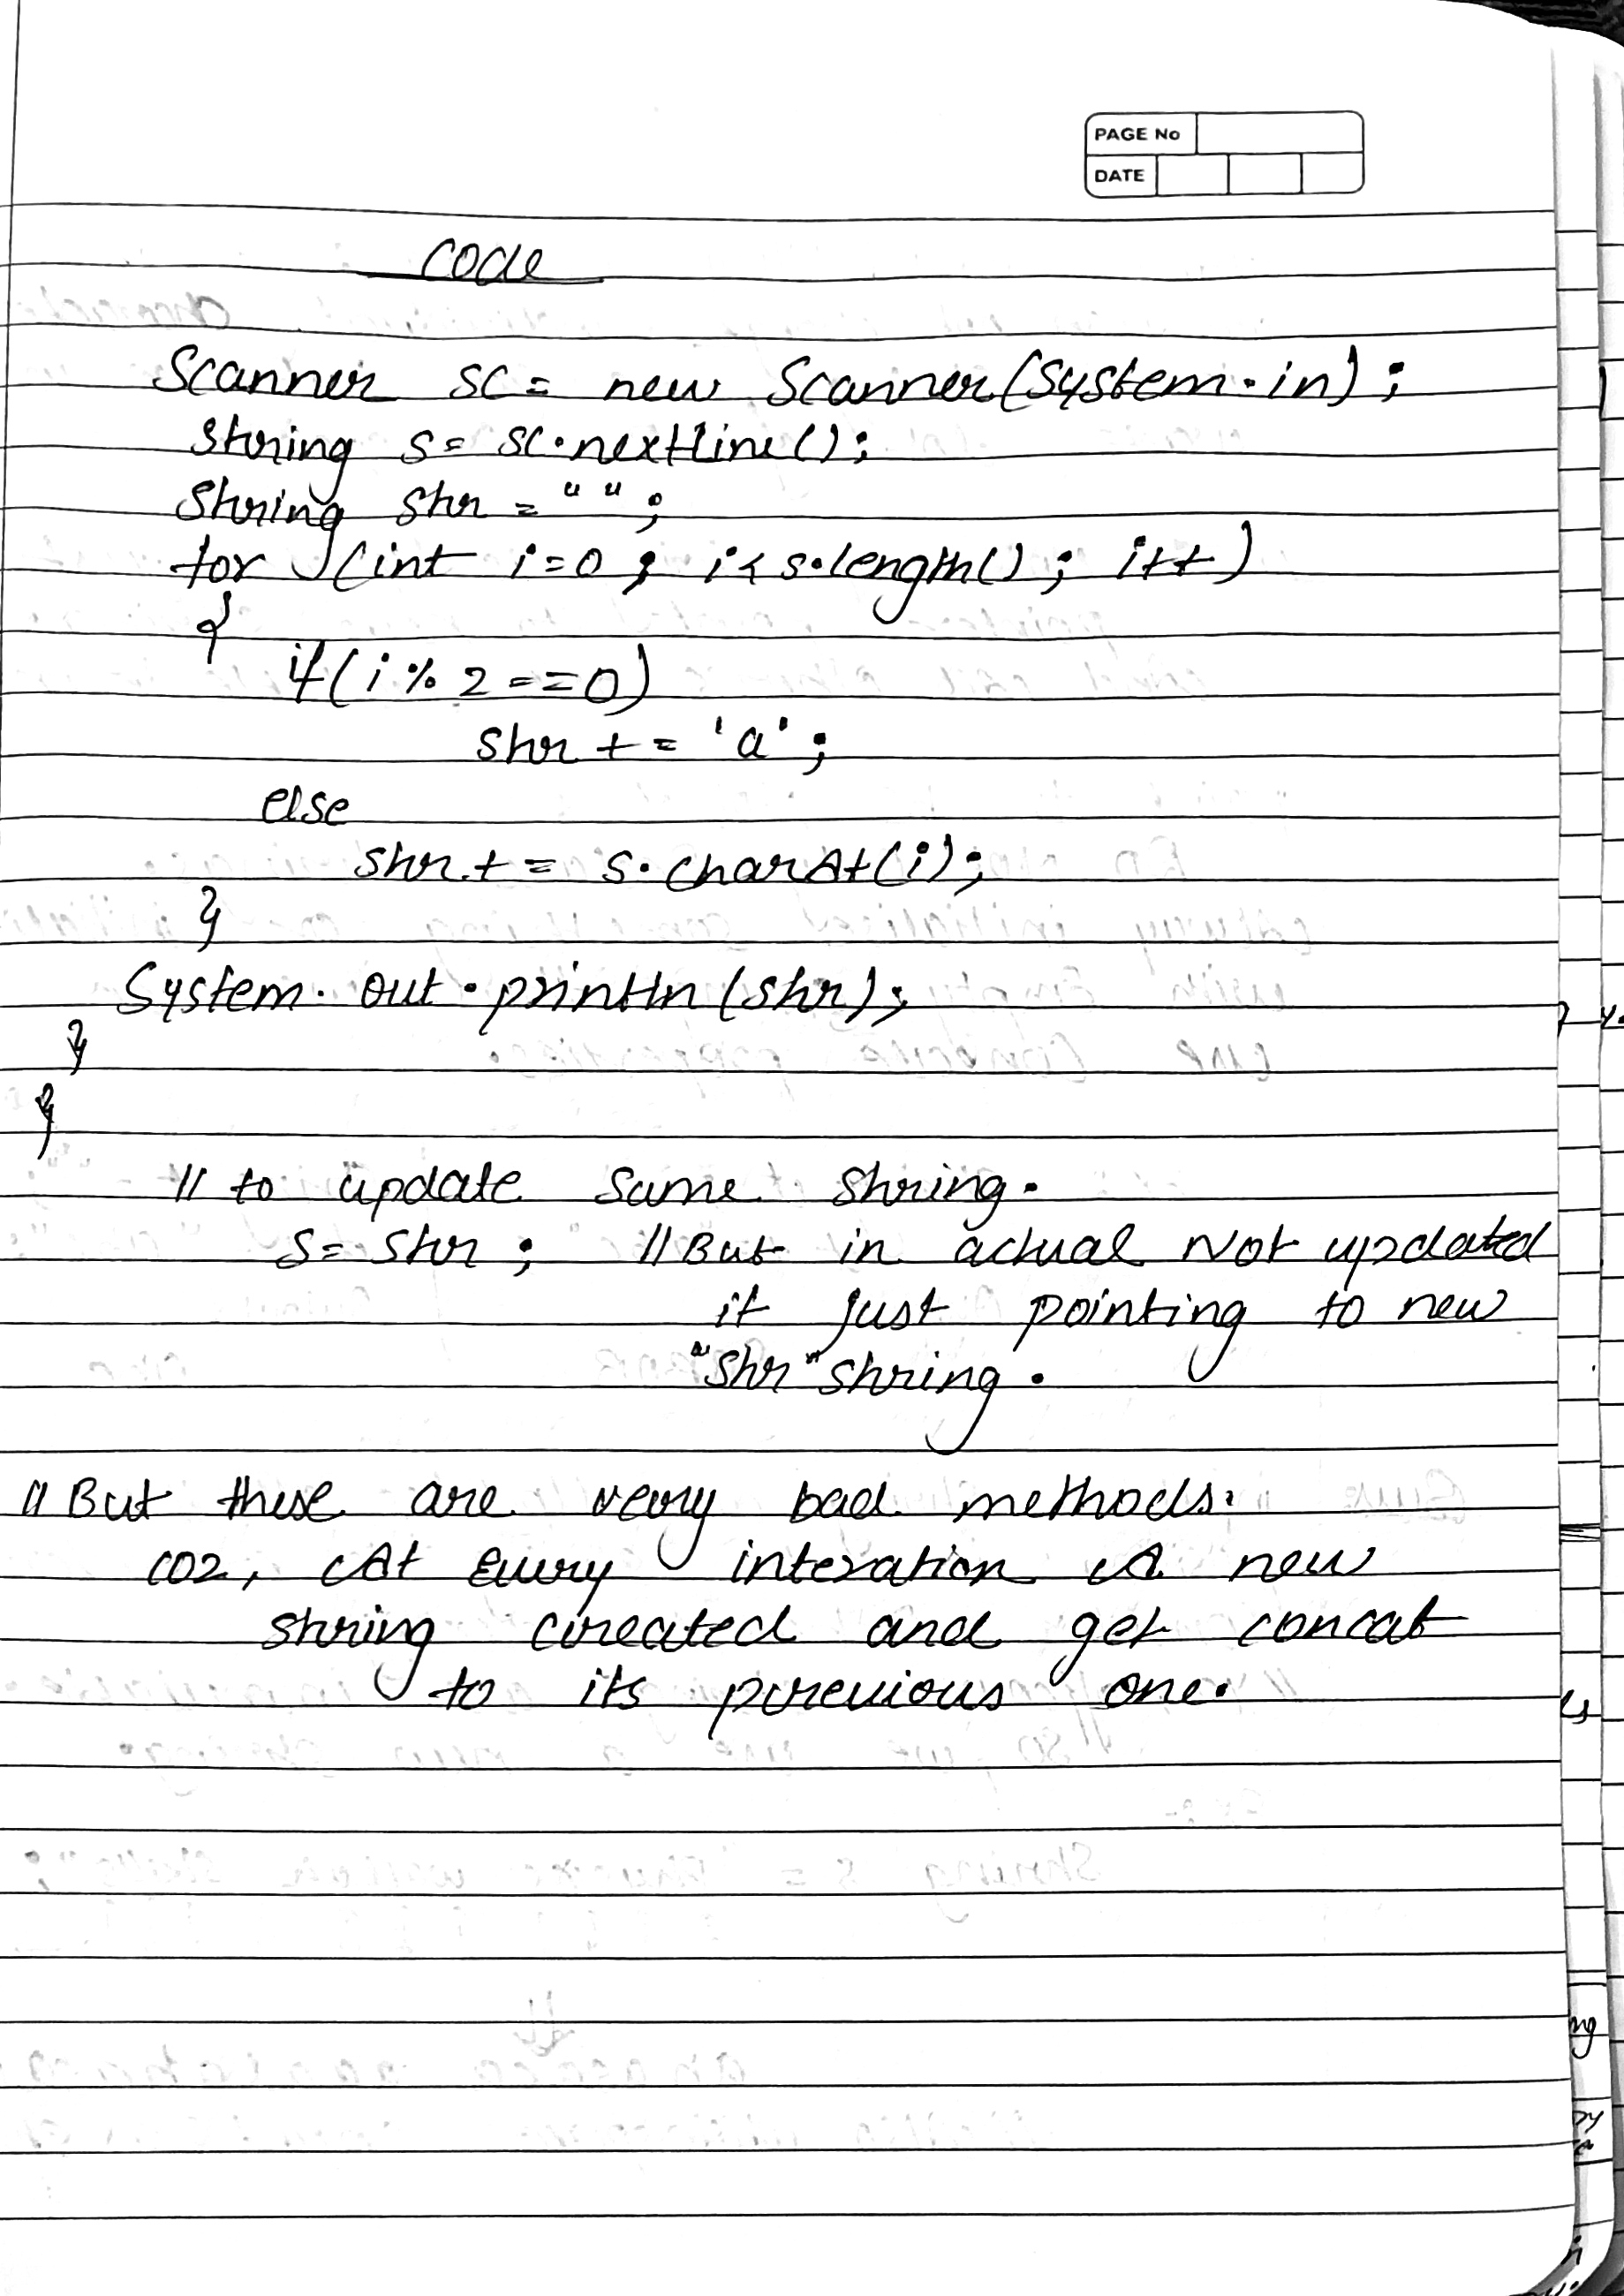 PAGE No
DATE
code
Scanner sc = new Scanner(System.in);
String s = sc.nextLine();
String str = "";
for (int i=0; i<s.length(); i++)
{
if(i%2==0)
str += 'a';
else
str += s.charAt(i);
}
System.out.println(str);
}
}
// to update same string.
s = str; // But in actual Not updated
it just pointing to new
"str" string.
// But these are very bad methods.
coz, At every interation A new
string created and get concat
to its previous one.